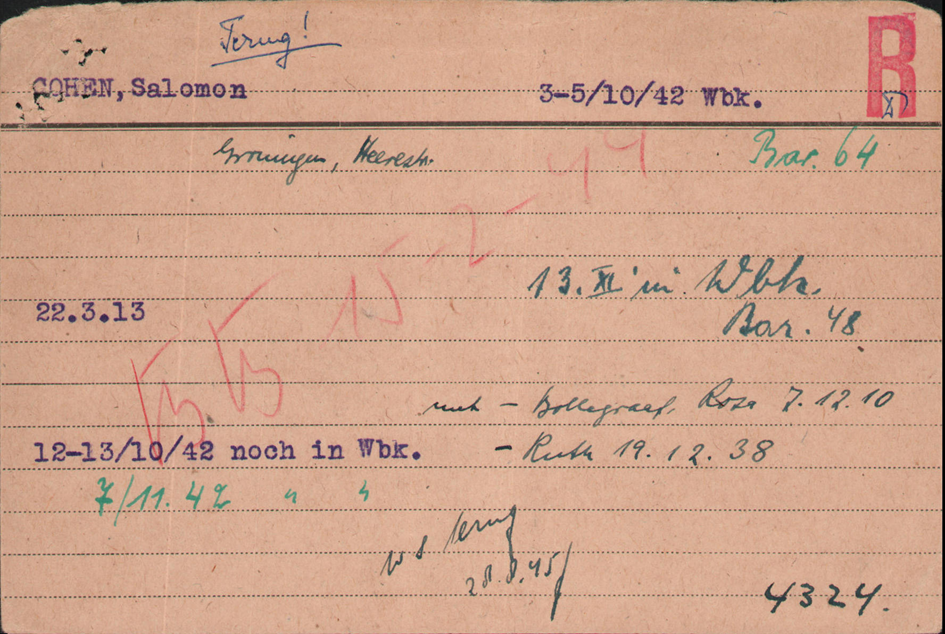 Terug!
COHEN, Salomon 3-5/10/42 Wbk. R
Groningen, Heerestr. Bar. 64
BB 15-2-44
13. XI in Wbk.
22.3.13
Bar. 48
- Bollegraaf, Rosa 7.12.10
12-13/10/42 noch in Wbk. - Ruth 19.12.38
7/11.42 " "
terug
28.8.45
4324.